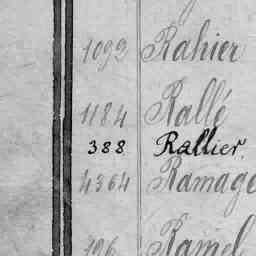 1092 Rahier
1184 Rallé
388 Rallier,
4364 Ramage
Ramel